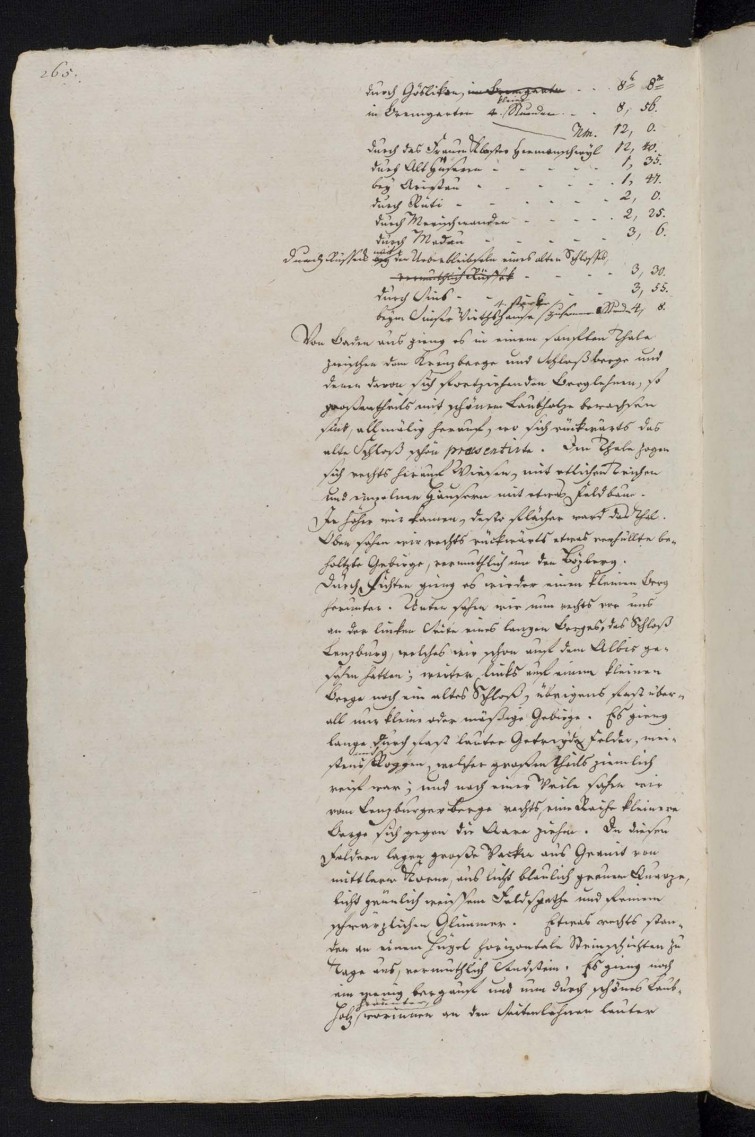 265.
durch Göslikon, im Bremgarten - - - 8h 8m
in Bremgarten 4. kleine Stunden - - 8, 56.
Nm. 12, 0.
durch das Frauen Kloster Hermenschwyl 12, 40.
durch Alt Häusern - - - - 1, 35.
bey Aristau - - - - - 1, 47.
durch Rüti - - - - - 2, 0.
durch Merischwanden - - - - 2, 25.
durch Medau - - - - 3, 6.
durch Russeck den Ueberbleibseln eines alten Schlosses,
vermuthlich Rüssek - - - 3, 30.
durch Sins - - - - 3, 55.
beym Sinser Wirthshause 4 starke Stund 4, 8.
Von Baden aus gieng es in einem sanften Thale
zwischen dem Kreuzberge und Schloßberge und
denen davon sich fortziehenden Berglehnen, so
grossentheils mit schönem Laubholze bewachsen
sind, allmälig herauf, wo sich rückwärts das
alte Schloß schön praesentirte. Im Thale zogen
sich rechts herauf Wiesen, mit etlichen Teichen
und einzelnen Häusern mit etwas Feldbau.
Je höher wir kamen, desto flächer ward das Thal.
Oben sahen wir rechts rückwärts etwas verhüllte be-
holzte Gebirge, vermuthlich um den Bözberg.
Durch Fichten gieng es wieder einen kleinen Berg
herunter. Unten sahen wir nun rechts vor uns
an der linken Seite eines langen Berges, das Schloß
Lenzburg, welches wir schon auf dem Albis ge-
sehn hatten; weiter links auf einem kleinen
Berge noch ein altes Schloß, übrigens fast über-
all nur kleine oder mässige Gebirge. Es gieng
lange durch fast lauter Getreyde Felder, mei-
stens Roggen, welcher großen theils ziemlich
reif war; und nach einer Weile sahen wir
vom Lenzburger Berge rechts, eine Reihe kleinere
Berge sich gegen die Aare ziehen. In diesen
Feldern lagen große Wacken aus Granit von
mittlerm Korne, aus licht blaulich grauem Quarze,
licht grünlich weissem Feldspathe und feinem
schwärzlichen Glimmer. Etwas rechts stan-
den an einem Hügel horizontale Steinschichten zu
Tage aus, vermuthlich Sandstein. Es gieng noch
ein wenig bergauf und nun durch schönes Laub-
holz herunter, worinnen an den Seitenlehnen lauter